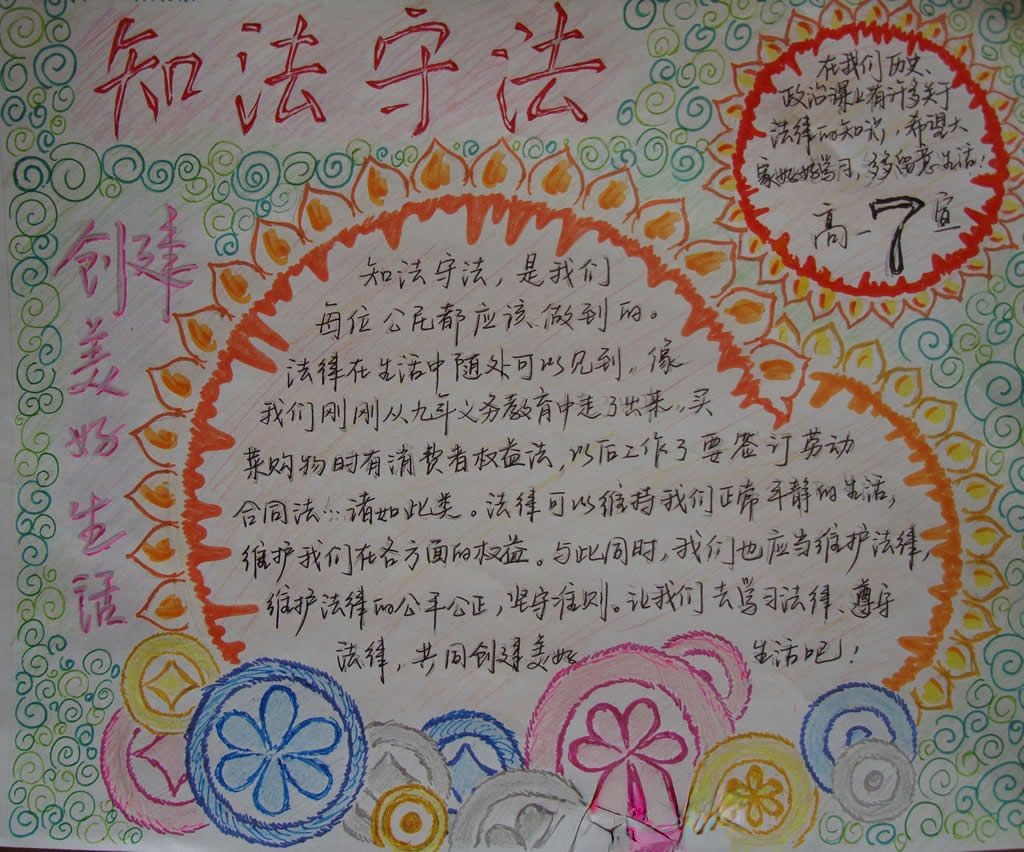 知法守法
创建美好生活
在我们历史、
政治课上有许多关于
法律的知识，希望大
家好好学习，多留意生活！
高一7宣
知法守法，是我们
每位公民都应该做到的。
法律在生活中随处可以见到，像
我们刚刚从九年义务教育中走了出来，买
菜购物时有消费者权益法，以后工作了要签订劳动
合同法…诸如此类。法律可以维持我们正常平静的生活，
维护我们在各方面的权益。与此同时，我们也应当维护法律，
维护法律的公平公正，坚守准则。让我们去学习法律、遵守
法律，共同创建美好 生活吧！